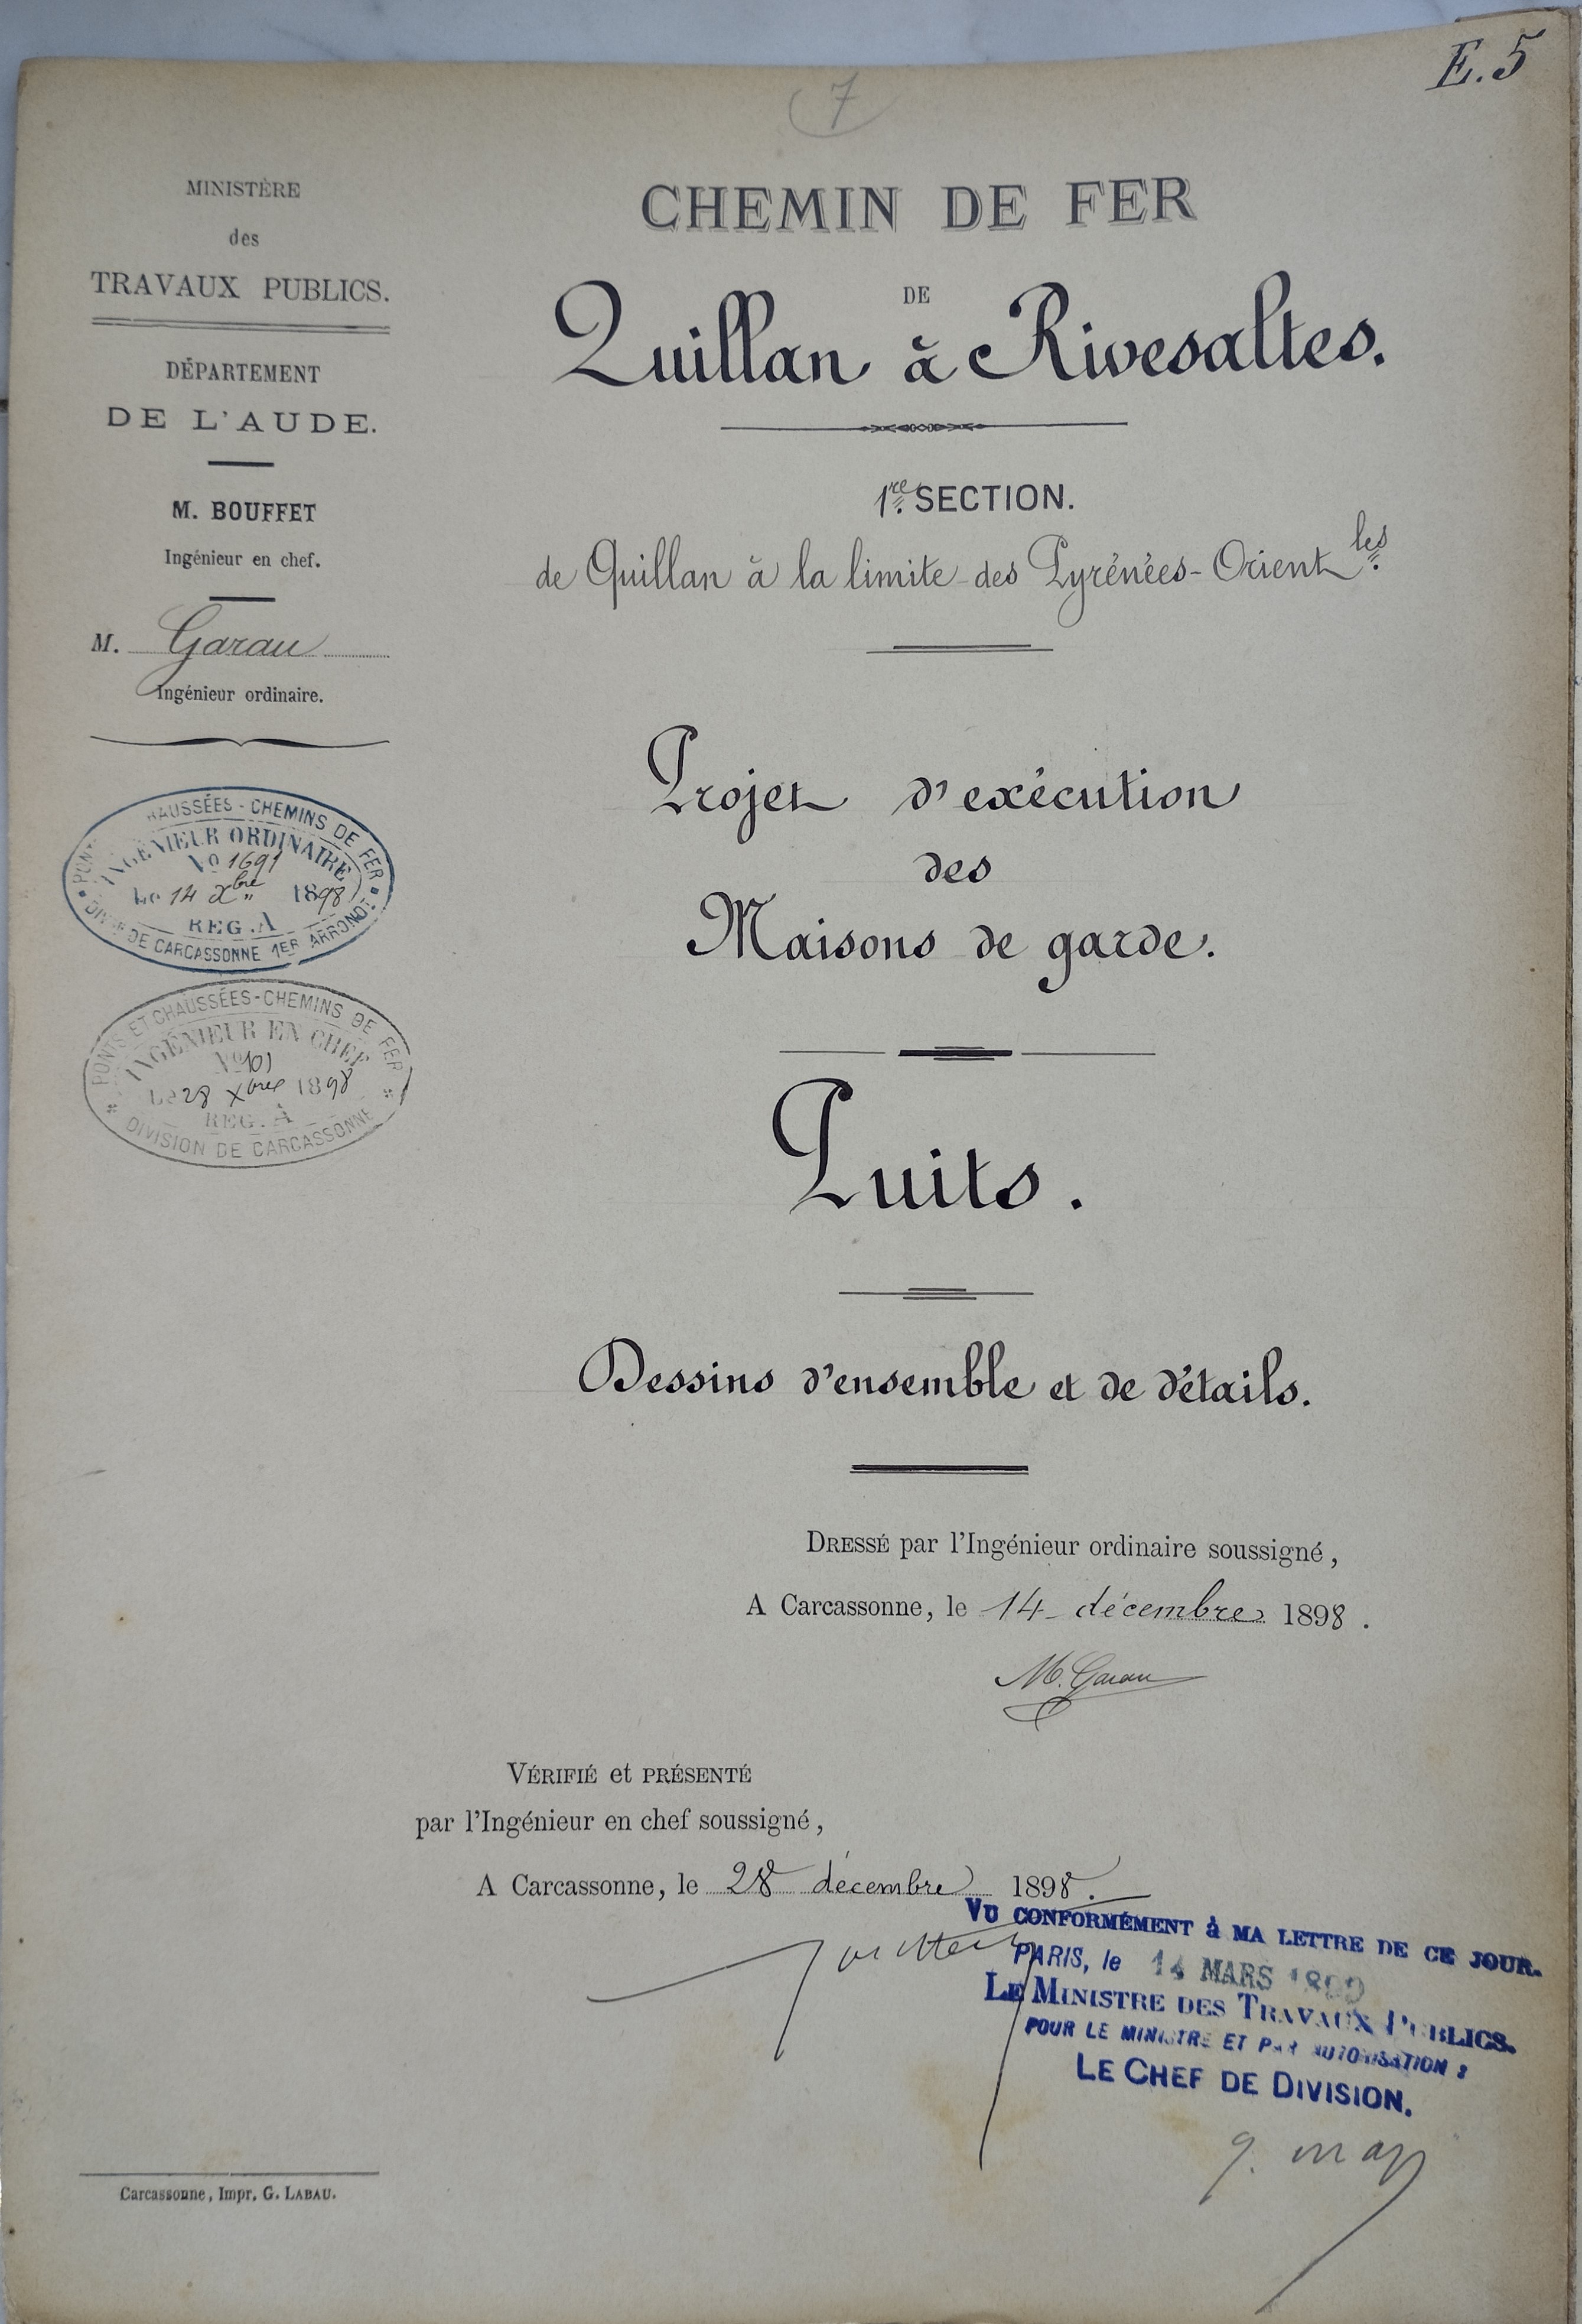 E.5
7
MINISTÈRE
des
TRAVAUX PUBLICS.
DÉPARTEMENT
DE L'AUDE.
M. BOUFFET
Ingénieur en chef.
M. Garau
Ingénieur ordinaire.
PONTS CHAUSSÉES - CHEMINS DE FER
INGÉNIEUR ORDINAIRE
No 1691
Le 14 Xbre 1898
REG. A
DIVon DE CARCASSONNE 1ER ARRONDt
PONTS ET CHAUSSÉES-CHEMINS DE FER
INGÉNIEUR EN CHEF
No 101
Le 28 Xbre 1898
REG. A
DIVISION DE CARCASSONNE
CHEMIN DE FER
DE
Quillan à Rivesaltes.
1re SECTION.
de Quillan à la limite des Pyrénées-Orientles.
Projet d'exécution
des
Maisons de garde.
Puits.
Dessins d'ensemble et de détails.
DRESSÉ par l'Ingénieur ordinaire soussigné,
A Carcassonne, le 14 décembre 1898.
M. Garau
VÉRIFIÉ et PRÉSENTÉ
par l'Ingénieur en chef soussigné,
A Carcassonne, le 28 décembre 1898.
VU CONFORMÉMENT à MA LETTRE DE CE JOUR.
PARIS, le 14 MARS 1899
LE MINISTRE DES TRAVAUX PUBLICS.
POUR LE MINISTRE ET PAR AUTORISATION :
LE CHEF DE DIVISION.
Carcassonne, Impr. G. LABAU.